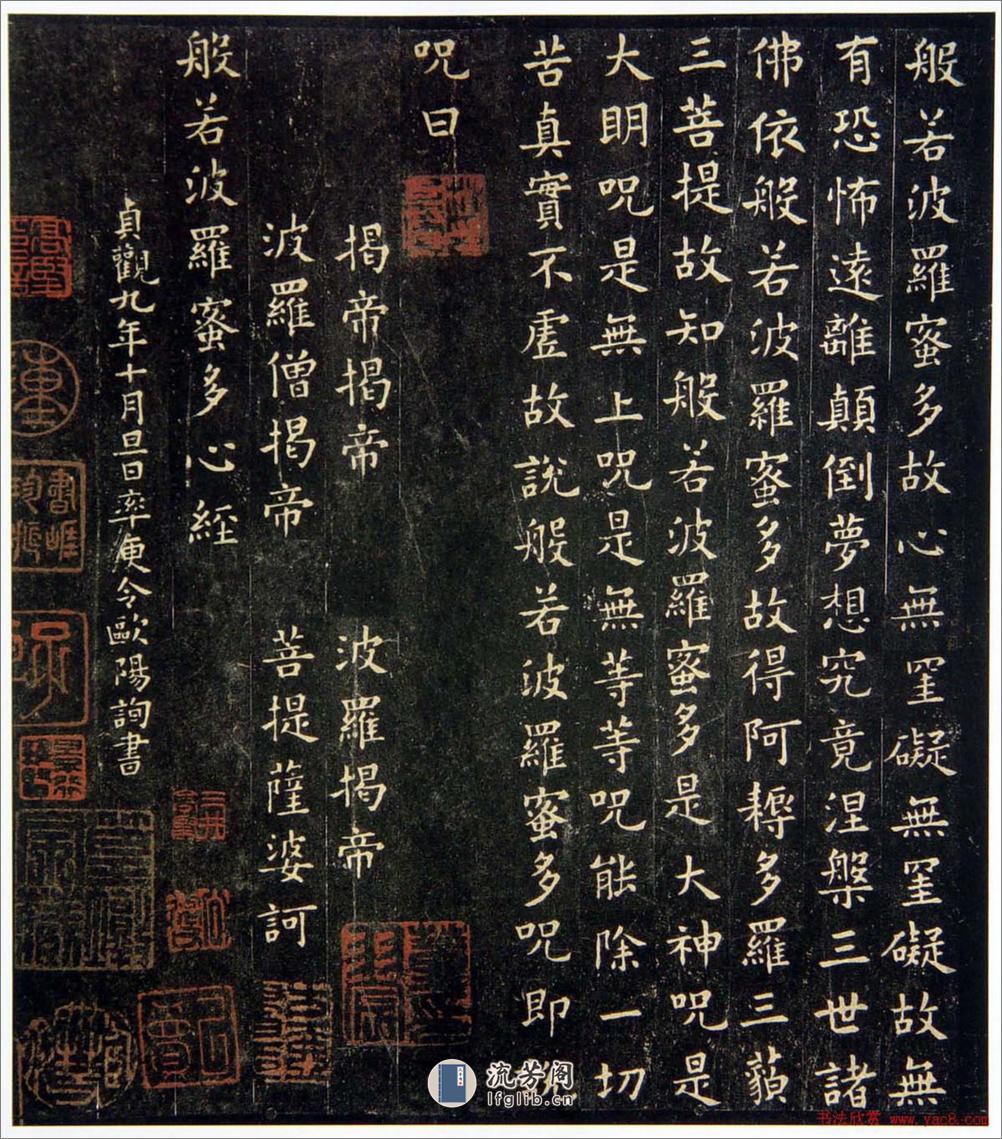 般若波羅蜜多故心無罣礙無罣礙故無
有恐怖遠離顛倒夢想究竟涅槃三世諸
佛依般若波羅蜜多故得阿耨多羅三藐
三菩提故知般若波羅蜜多是大神咒是
大明咒是無上咒是無等等咒能除一切
苦真實不虛故說般若波羅蜜多咒即
咒曰
揭帝揭帝 波羅揭帝
波羅僧揭帝 菩提薩婆訶
般若波羅蜜多心經
貞觀九年十月旦日率更令歐陽詢書
流芳阁
lfglib.cn
书法欣赏 www.yac8.com